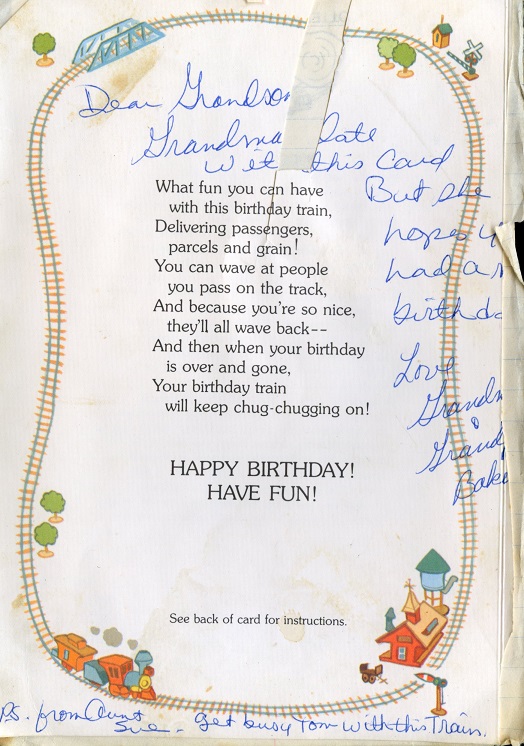 Dear Grandson
Grandma late
wit this Card
But she
hopes y
had a n
birthda
Love
Grandm
&
Grand
Bake
What fun you can have
with this birthday train,
Delivering passengers,
parcels and grain!
You can wave at people
you pass on the track,
And because you're so nice,
they'll all wave back--
And then when your birthday
is over and gone,
Your birthday train
will keep chug-chugging on!
HAPPY BIRTHDAY!
HAVE FUN!
See back of card for instructions.
P.S. from Aunt
Sue - get busy Tom with this Train.